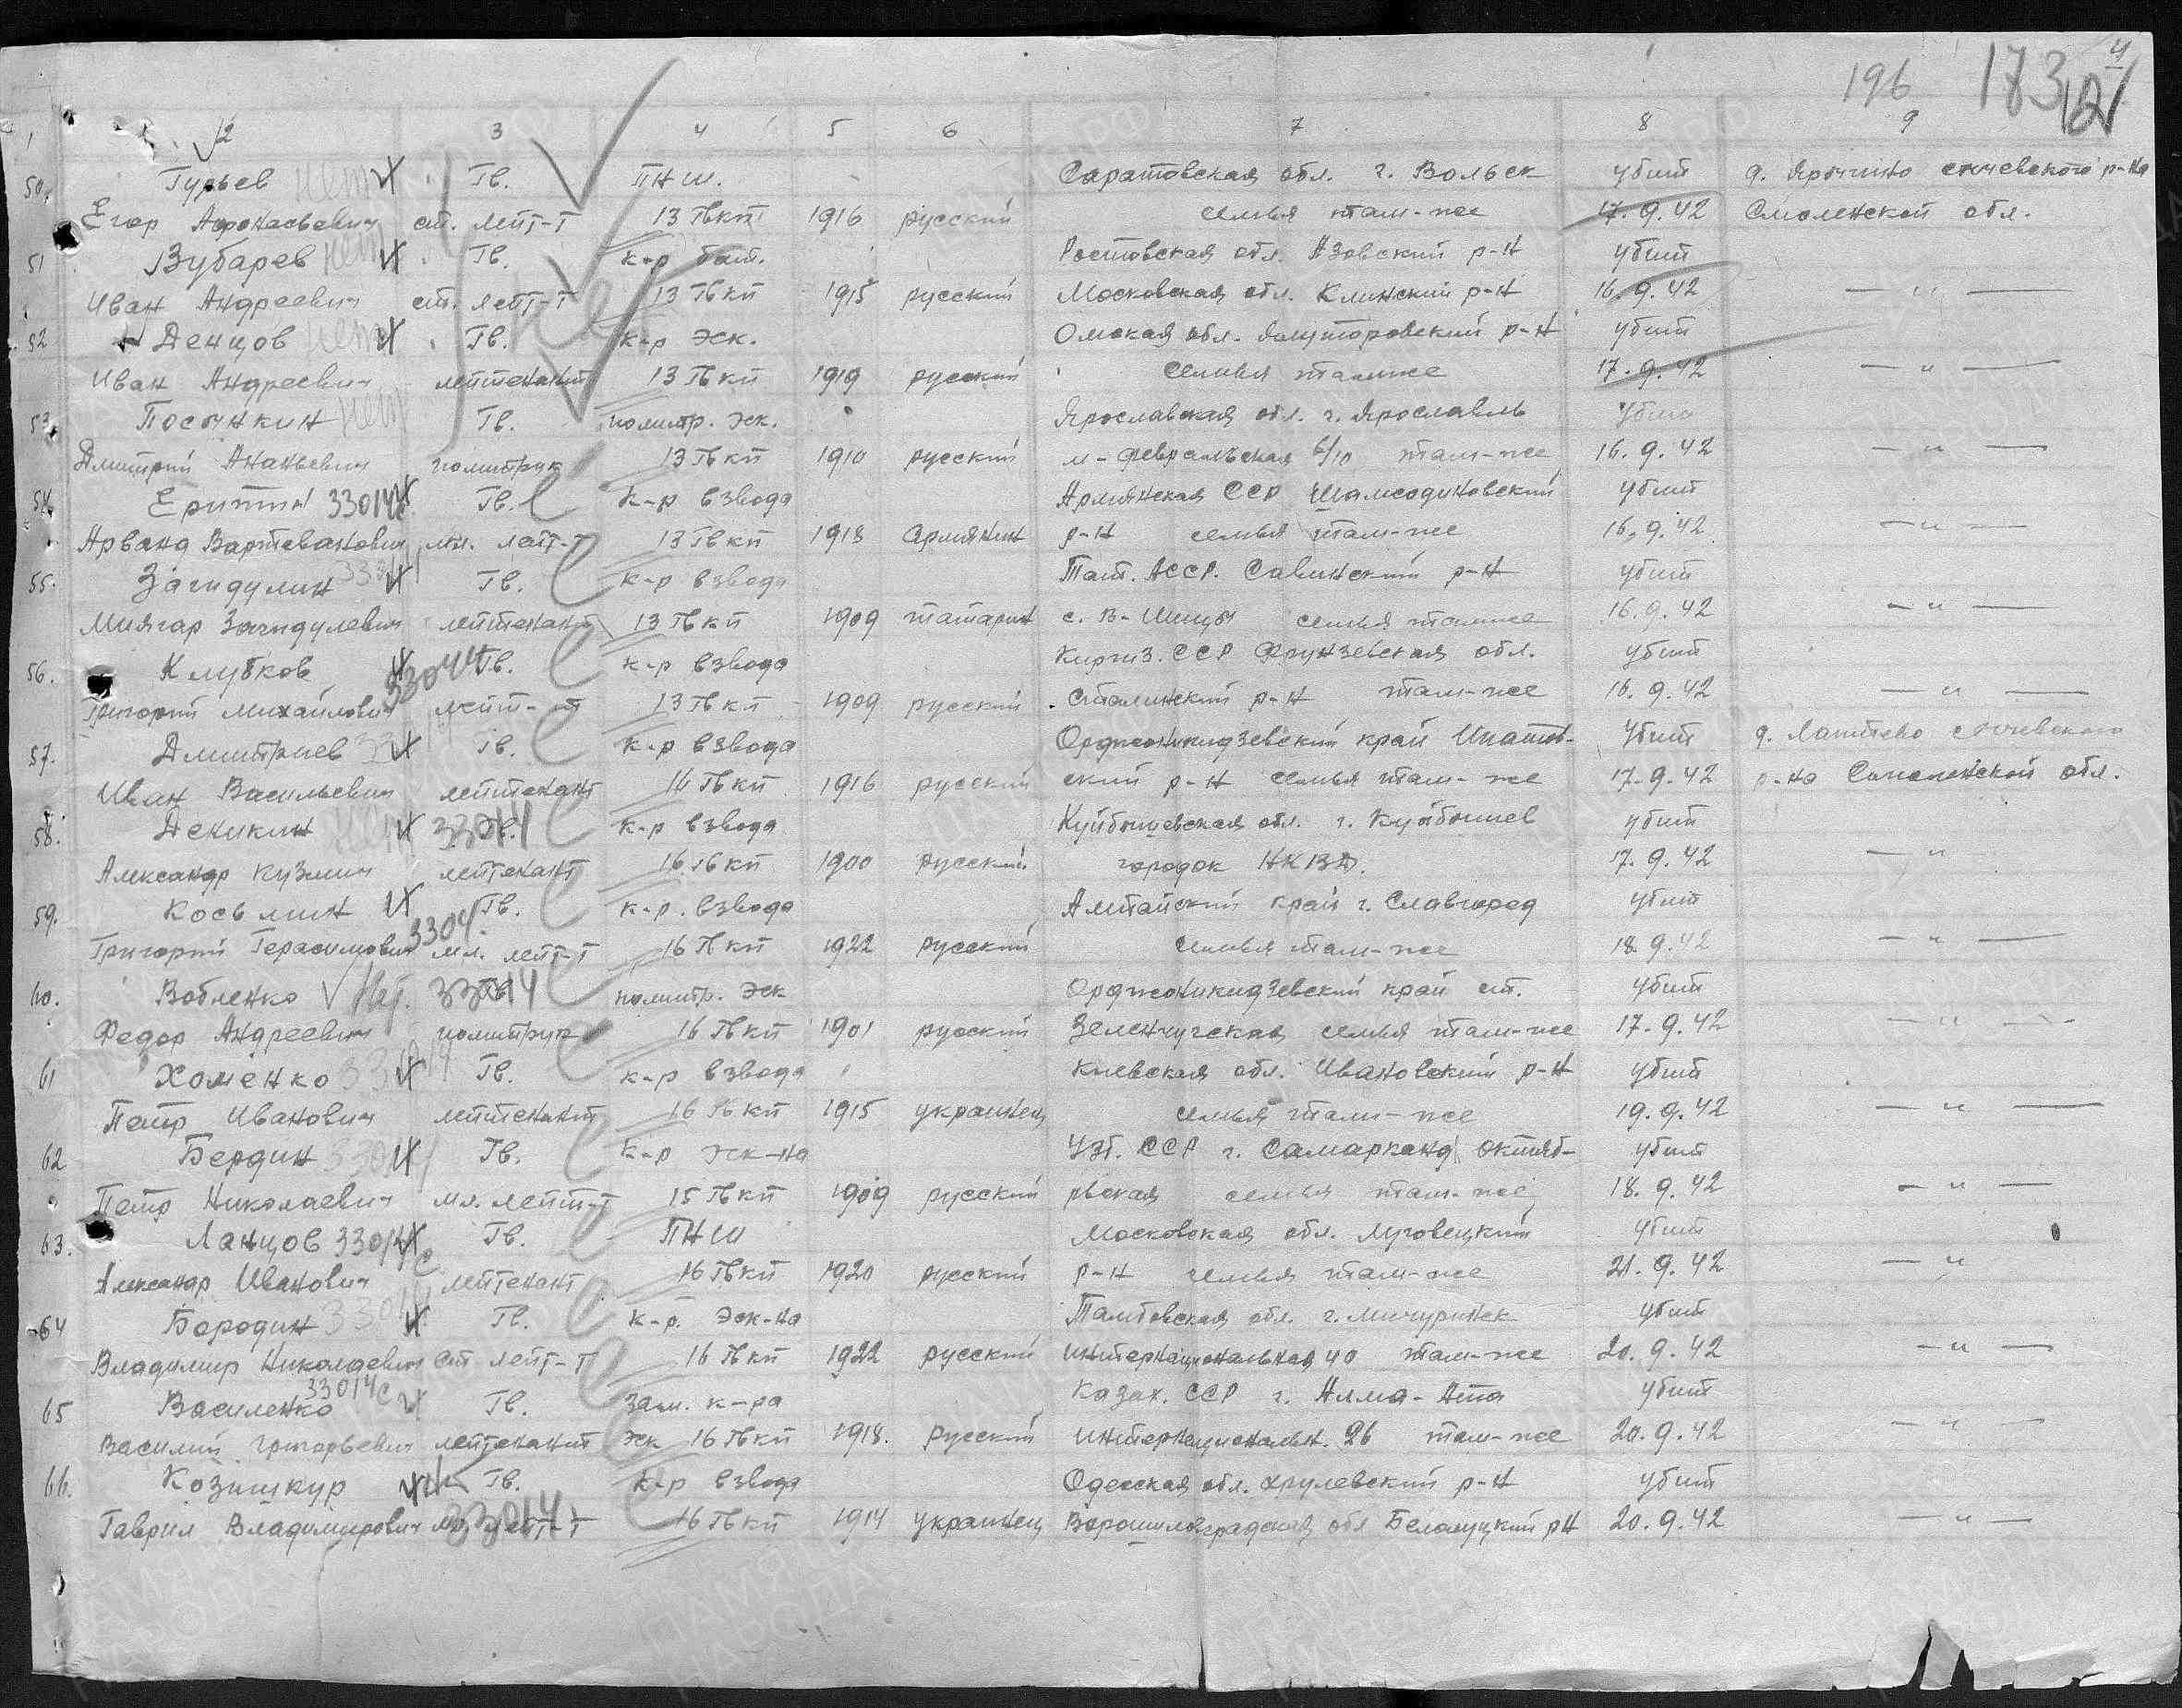 196 173
4
1 2 3 4 5 6 7 8 9
50. Гурьев нет Гв. ПНШ. Саратовская обл. г. Вольск убит д. Ярыгино сычевского р-на
Егор Афонасьевич ст. лейт-т 13 Гвкп 1916 русский семья там-же 17.9.42 Смоленской обл.
51 Зубарев нет Гв. к-р бат. Ростовская обл. Азовский р-н убит
Иван Андреевич ст. лейт-т 13 Гвкп 1915 русский Московская обл. Клинский р-н 16.9.42 — " —
52 Денцов нет Гв. к-р эск. Омская обл. Ялуторовский р-н убит
Иван Андреевич лейтенант 13 Гвкп 1919 русский семья там же 17.9.42 — " —
53 Посынкин нет Гв. политр. эск. Ярославская обл. г. Ярославль убит
Дмитрий Ананьевич политрук 13 Гвкп 1910 русский м-Февральская 6/10 там-же 16.9.42 — " —
54 Еритин 33014 Гв. к-р взвода Армянская ССР Шамсодиновский убит
Арванд Вартеванович мл. лейт-т 13 Гвкп 1918 Армянин р-н семья там-же 16.9.42 — " —
55. Загидулин Гв. к-р взвода Тат. АССР. Савинский р-н убит
Миягар Загидулевич лейтенант 13 Гвкп 1909 татарин с. В-Шицы семья там же 16.9.42 — " —
56. Клубков 33014 Гв. к-р взвода Киргиз. ССР Фрунзевская обл. убит
Григорий Михайлович лейт-т 13 Гвкп 1909 русский Сталинский р-н там-же 16.9.42 — " —
57. Дмитриев Гв. к-р взвода Орджоникидзевский край Ипатов- убит д. Лаптево сычевского
Иван Васильевич лейтенант 16 Гвкп 1916 русский ский р-н семья там-же 17.9.42 р-на Смоленской обл.
58. Деникин нет 33014 Гв. к-р взвода Куйбышевская обл. г. Куйбышев убит
Александр Кузмич лейтенант 16 Гвкп 1900 русский городок НКВД. 17.9.42 — " —
59. Косьмин 3304 Гв. к-р. взвода Алтайский край г. Славгород убит
Григорий Герасимович мл. лейт-т 16 Гвкп 1922 русский семья там-же 18.9.42 — " —
60. Вобленко Нет. 33014 Гв. политр. эск Орджоникидзевский край ст. убит
Федор Андреевич политрук 16 Гвкп 1901 русский Зеленчугская семья там-же 17.9.42 — " —
61 Хоменко 33014 Гв. к-р взвода Киевская обл. Ивановский р-н убит
Петр Иванович лейтенант 16 Гвкп 1915 украинец семья там-же 19.9.42 — " —
62 Бердин 33014 Гв. к-р эск-на Узб. ССР г. Самарканд Октяб- убит
Петр Николаевич мл. лейт-т 15 Гвкп 1909 русский рьская семья там-же 18.9.42 — " —
63. Ланцов 33014 с Гв. ПНШ Московская обл. Луговецкий убит
Александр Иванович лейтенант 16 Гвкп 1920 русский р-н семья там-же 21.9.42 — "
64 Бородин 33014 Гв. к-р. эск-на Тамбовская обл. г. Мичуринск убит
Владимир Николаевич ст лейт-т 16 Гвкп 1922 русский Интернациональная 40 там-же 20.9.42 — " —
65 Василенко 33014 с Гв. зам. к-ра Казах. ССР г. Алма-Ата убит
Василий Григорьевич лейтенант эск 16 Гвкп 1918. русский Интернациональн. 26 там-же 20.9.42 — " —
66. Козишкур Гв. к-р взвода Одесская обл. Хрулевский р-н убит
Гаврил Владимирович мл. лейт-т 33014 16 Гвкп 1914 украинец Ворошиловградская обл Беловуцкий рн 20.9.42 — " —